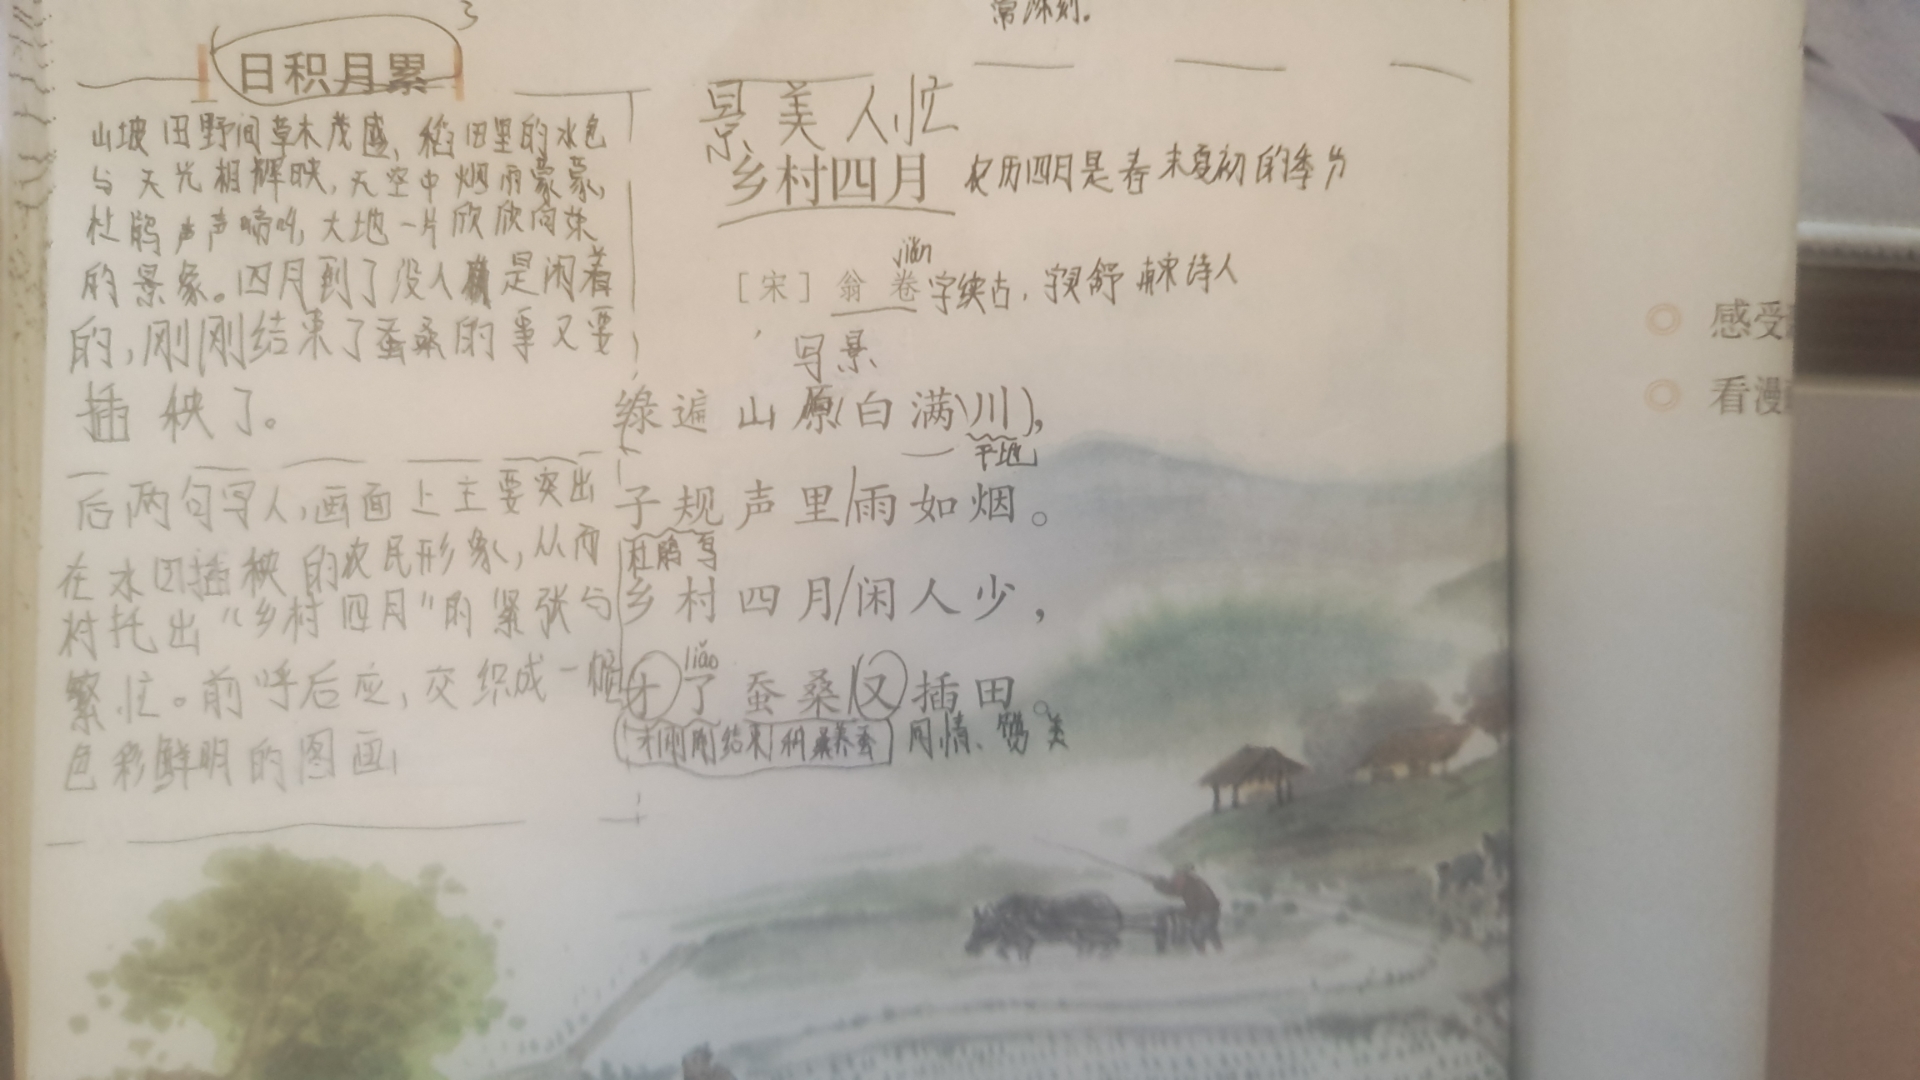 常深刻。
日积月累
山坡田野间草木茂盛,稻田里的水色
与天光相辉映,天空中烟雨蒙蒙,
杜鹃声声啼叫,大地一片欣欣向荣
的景象。四月到了没人是闲着
的,刚刚结束了蚕桑的事又要
插秧了。
后两句写人,画面上主要突出
在水田插秧的农民形象,从而
衬托出“乡村四月”的紧张与
繁忙。前呼后应,交织成一幅
色彩鲜明的图画
景美人忙
乡村四月 农历四月是春末夏初的季节
juàn
[宋] 翁 卷 字续古,字灵舒 南宋诗人
写景
绿遍山原(白满川),
平地
子规声里/雨如烟。
杜鹃鸟
乡村四月/闲人少,
liǎo
才了蚕桑/又插田。
才刚刚结束 养蚕 同情、赞美
感受
看漫